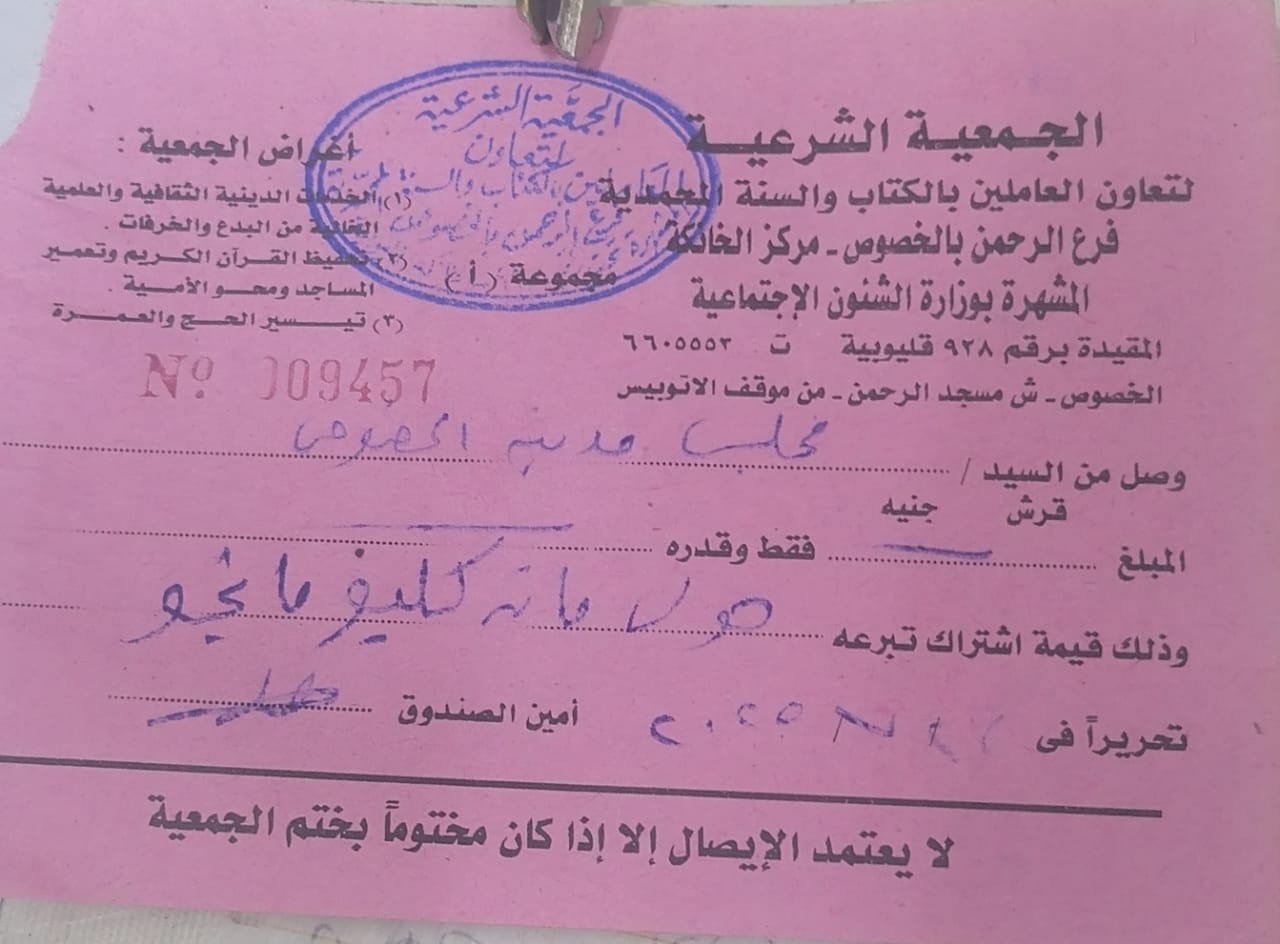 الجمعية الشرعية
لتعاون العاملين بالكتاب والسنة المحمدية
فرع الرحمن بالخصوص - مركز الخانكة
المشهرة بوزارة الشئون الإجتماعية
المقيدة برقم ٩٢٨ قليوبية ت ٦٦٠٥٥٥٢
الخصوص - ش مسجد الرحمن - من موقف الاتوبيس
الجمعية الشرعية
لتعاون
العاملين بالكتاب والسنة المحمدية
فرع الرحمن بالخصوص
مجموعة (أ)
أغراض الجمعية :
(١) الخدمات الدينية الثقافية والعلمية
الخالية من البدع والخرفات .
(٢) تحفيظ القرآن الكريم وتعمير
المساجد ومحو الأمية .
(٣) تيسير الحج والعمرة
Nº 009457
وصل من السيد / مجلس مدينة الخصوص
قرش جنيه
المبلغ فقط وقدره
وذلك قيمة اشتراك تبرعه مائة كليو مانجو
تحريراً فى ٢٠٢٥ أمين الصندوق
لا يعتمد الإيصال إلا إذا كان مختوماً بختم الجمعية